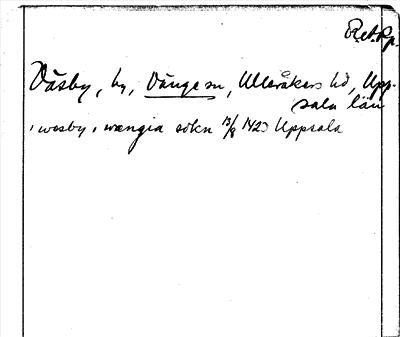 Ret. Rp.
Väsby, by, Vänge sn, Ulleråkers hd, Upp-
sala län
i wesby i wængia sokn 13/8 1423 Uppsala